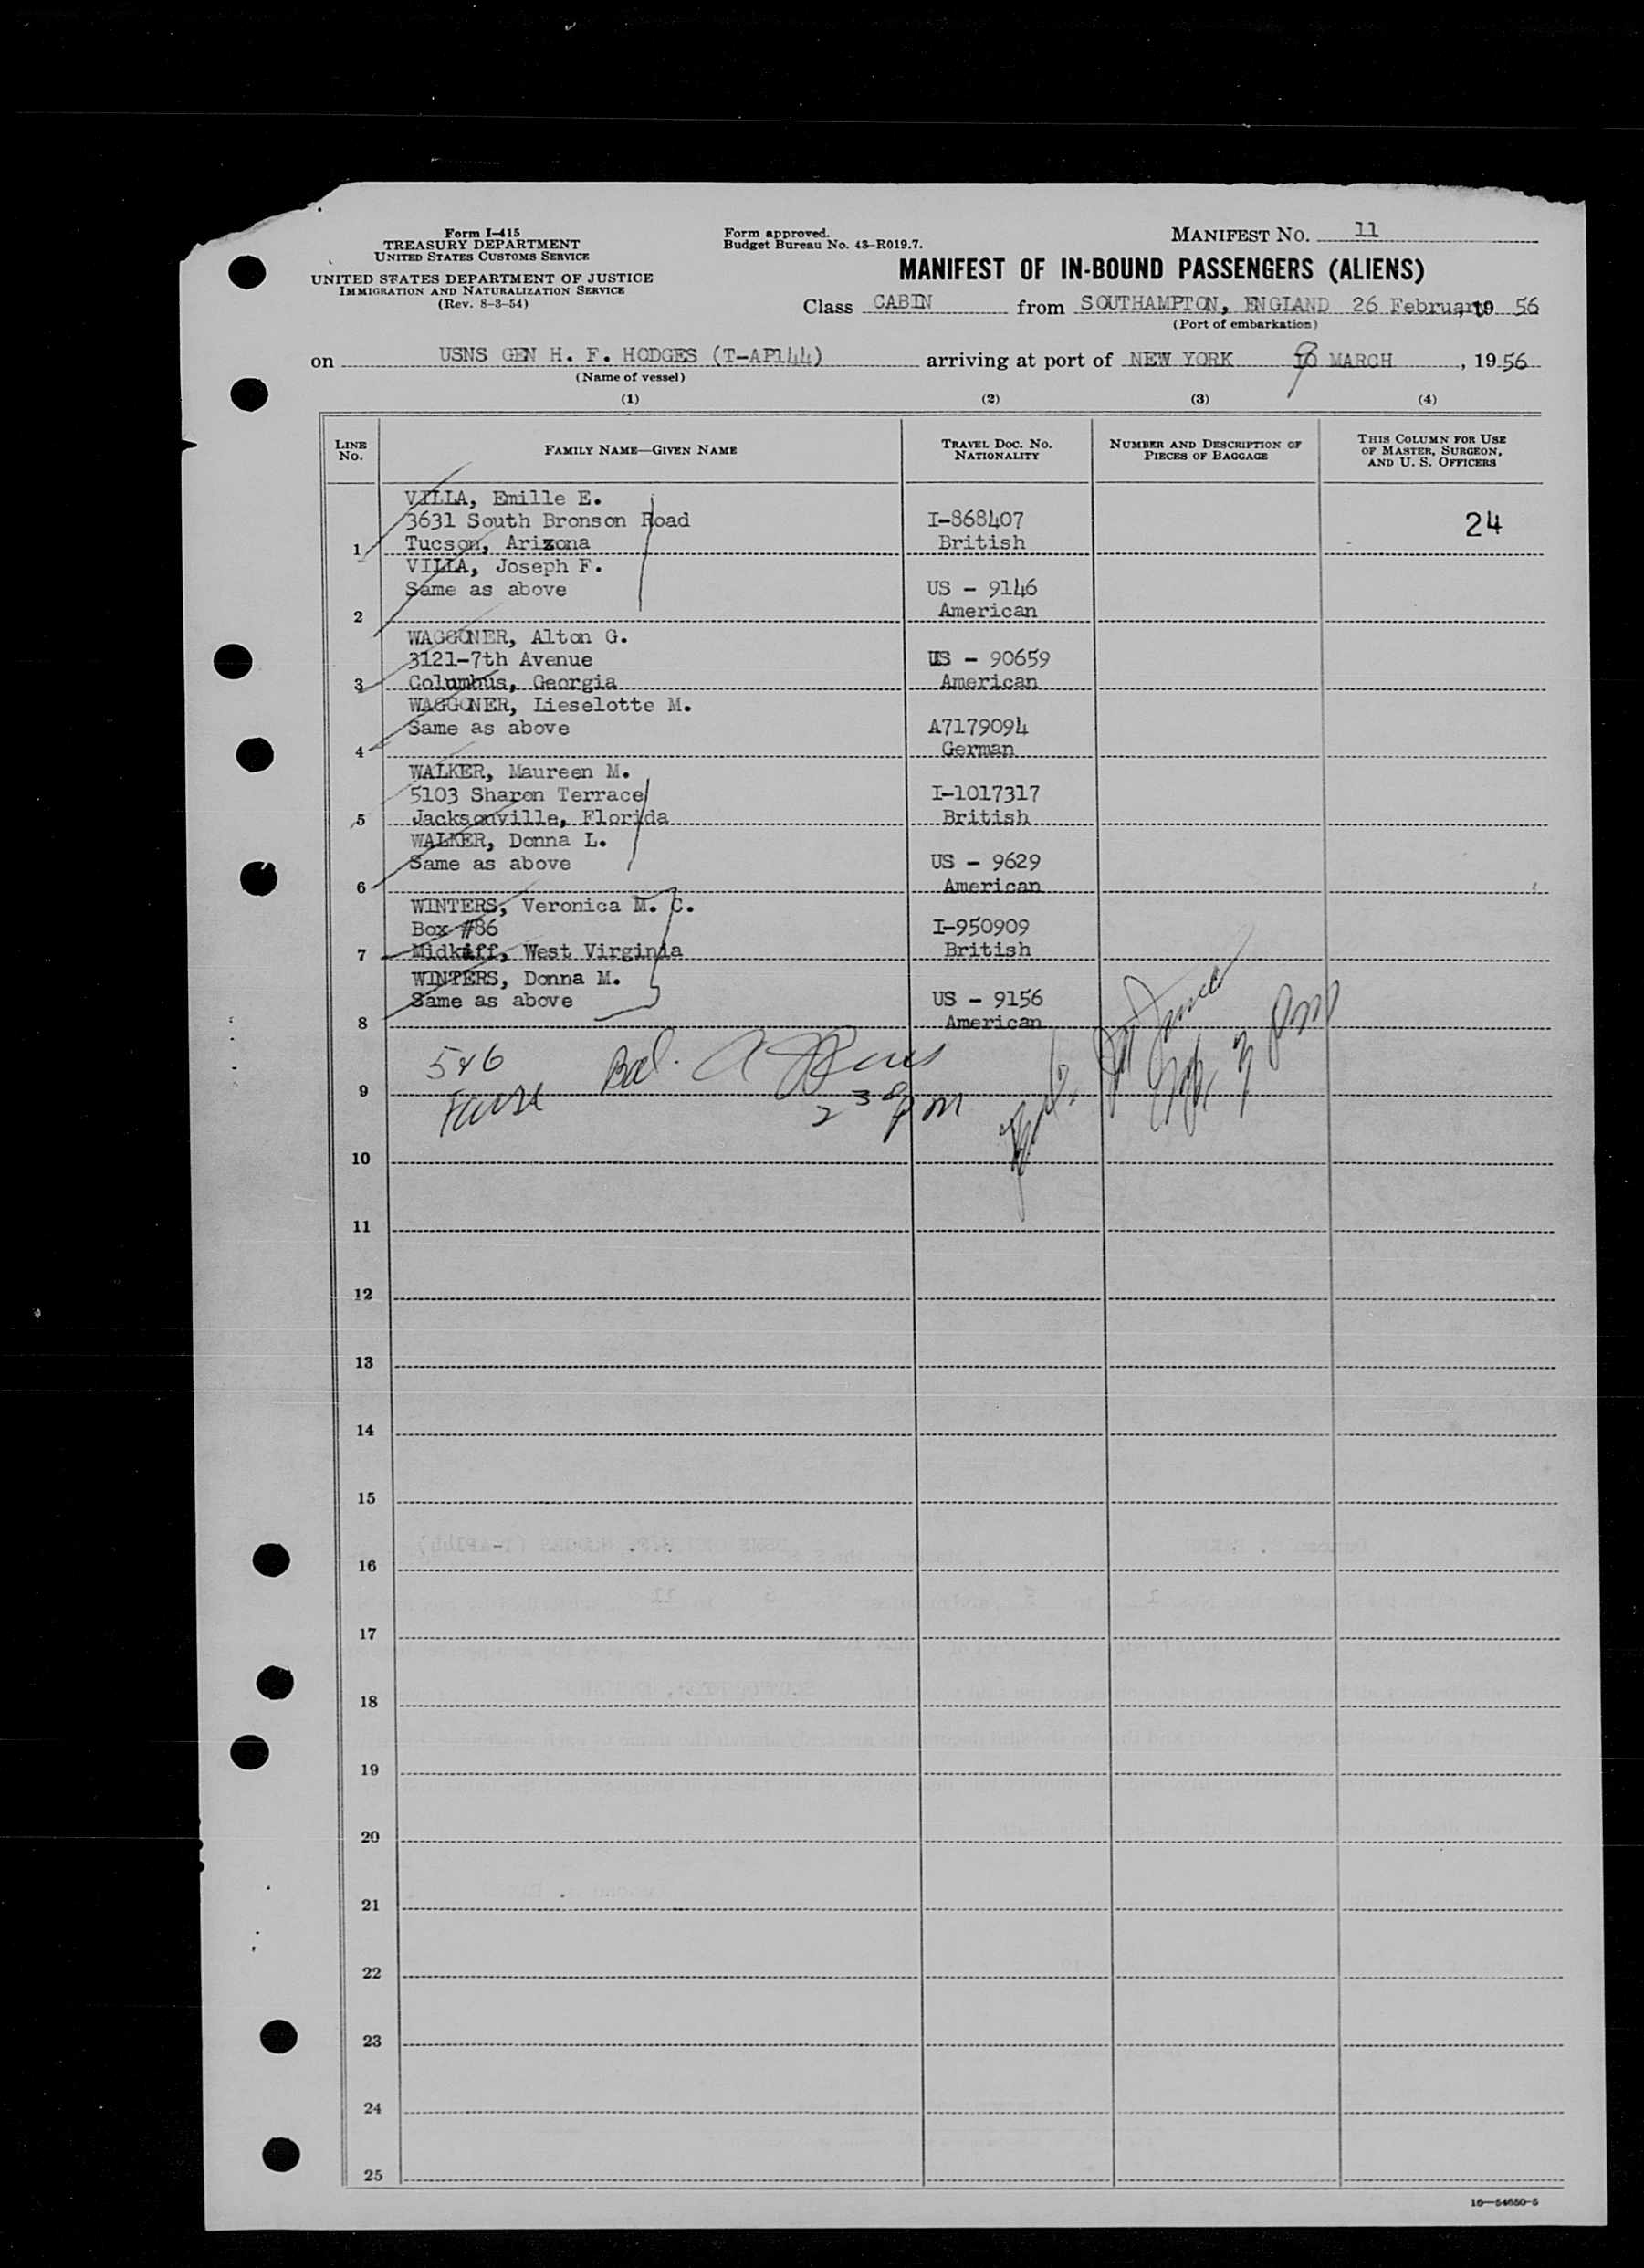 Form I-415
TREASURY DEPARTMENT
UNITED STATES CUSTOMS SERVICE
UNITED STATES DEPARTMENT OF JUSTICE
IMMIGRATION AND NATURALIZATION SERVICE
(Rev. 8-3-54)
Form approved.
Budget Bureau No. 43-R019.7.
MANIFEST NO. 11
MANIFEST OF IN-BOUND PASSENGERS (ALIENS)
Class CABIN from SOUTHAMPTON, ENGLAND 26 February, 19 56
(Port of embarkation)
on USNS GEN H. F. HODGES (T-AP144) arriving at port of NEW YORK MARCH, 19 56
(Name of vessel)
(1) (2) (3) (4)
LINE NO. FAMILY NAME—GIVEN NAME TRAVEL DOC. NO. NATIONALITY NUMBER AND DESCRIPTION OF PIECES OF BAGGAGE THIS COLUMN FOR USE OF MASTER, SURGEON, AND U. S. OFFICERS
VILLA, Emille E.
3631 South Bronson Road I-868407 24
1 Tucson, Arizona British
VILLA, Joseph F.
Same as above US - 9146
2 American
WAGGONER, Alton G.
3121-7th Avenue US - 90659
3 Columbus, Georgia American
WAGGONER, Lieselotte M.
Same as above A7179094
4 German
WALKER, Maureen M.
5103 Sharon Terrace I-1017317
5 Jacksonville, Florida British
WALKER, Donna L.
Same as above US - 9629
6 American
WINTERS, Veronica M. C.
Box #86 I-950909
7 Midkiff, West Virginia British
WINTERS, Donna M.
Same as above US - 9156
8 American
546
9
10
11
12
13
14
15
16
17
18
19
20
21
22
23
24
25
16—54650-5